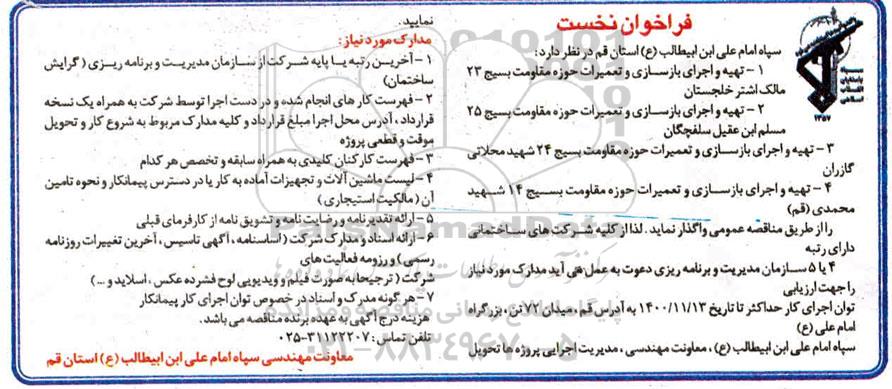 فراخوان نخست
سپاه امام علی ابن ابیطالب (ع) استان قم در نظر دارد:
۱ - تهیه و اجرای بازسازی و تعمیرات حوزه مقاومت بسیج ۲۳
مالک اشتر خلجستان
۲ - تهیه و اجرای بازسازی و تعمیرات حوزه مقاومت بسیج ۲۵
مسلم ابن عقیل سلفچگان
۳ - تهیه و اجرای بازسازی و تعمیرات حوزه مقاومت بسیج ۲۴ شهید محلاتی
گازران
۴ - تهیه و اجرای بازسازی و تعمیرات حوزه مقاومت بسیج ۱۴ شهید
محمدی (قم)
را از طریق مناقصه عمومی واگذار نماید. لذا از کلیه شرکت های ساختمانی
دارای رتبه
۴ یا ۵ سازمان مدیریت و برنامه ریزی دعوت به عمل می آید مدارک مورد نیاز
را جهت ارزیابی
توان اجرای کار حداکثر تا تاریخ ۱۴۰۰/۱۱/۱۳ به آدرس قم، میدان ۷۲ تن، بزرگراه
امام علی (ع)
سپاه امام علی ابن ابیطالب (ع)، معاونت مهندسی، مدیریت اجرایی پروژه ها تحویل
نمایید.
مدارک مورد نیاز:
۱ - آخرین رتبه یا پایه شرکت از سازمان مدیریت و برنامه ریزی (گرایش
ساختمان)
۲ - فهرست کار های انجام شده و در دست اجرا توسط شرکت به همراه یک نسخه
قرارداد، آدرس محل اجرا مبلغ قرارداد و کلیه مدارک مربوط به شروع کار و تحویل
موقت و قطعی پروژه
۳ - فهرست کارکنان کلیدی به همراه سابقه و تخصص هر کدام
۴ - لیست ماشین آلات و تجهیزات آماده به کار یا در دسترس پیمانکار و نحوه تامین
آن (مالکیت استیجاری)
۵ - ارائه تقدیر نامه و رضایت نامه و تشویق نامه از کارفرمای قبلی
۶ - ارائه اسناد و مدارک شرکت (اساسنامه، آگهی تاسیس، آخرین تغییرات روزنامه
رسمی) و رزومه فعالیت های
شرکت (ترجیحا به صورت فیلم و ویدیویی لوح فشرده عکس، اسلاید و ...)
۷ - هر گونه مدرک و اسناد در خصوص توان اجرای کار پیمانکار
هزینه درج آگهی به عهده برنده مناقصه می باشد.
تلفن تماس: ۳۱۱۲۲۲۰۷-۰۲۵
معاونت مهندسی سپاه امام علی ابن ابیطالب (ع) استان قم
ParsNamadData